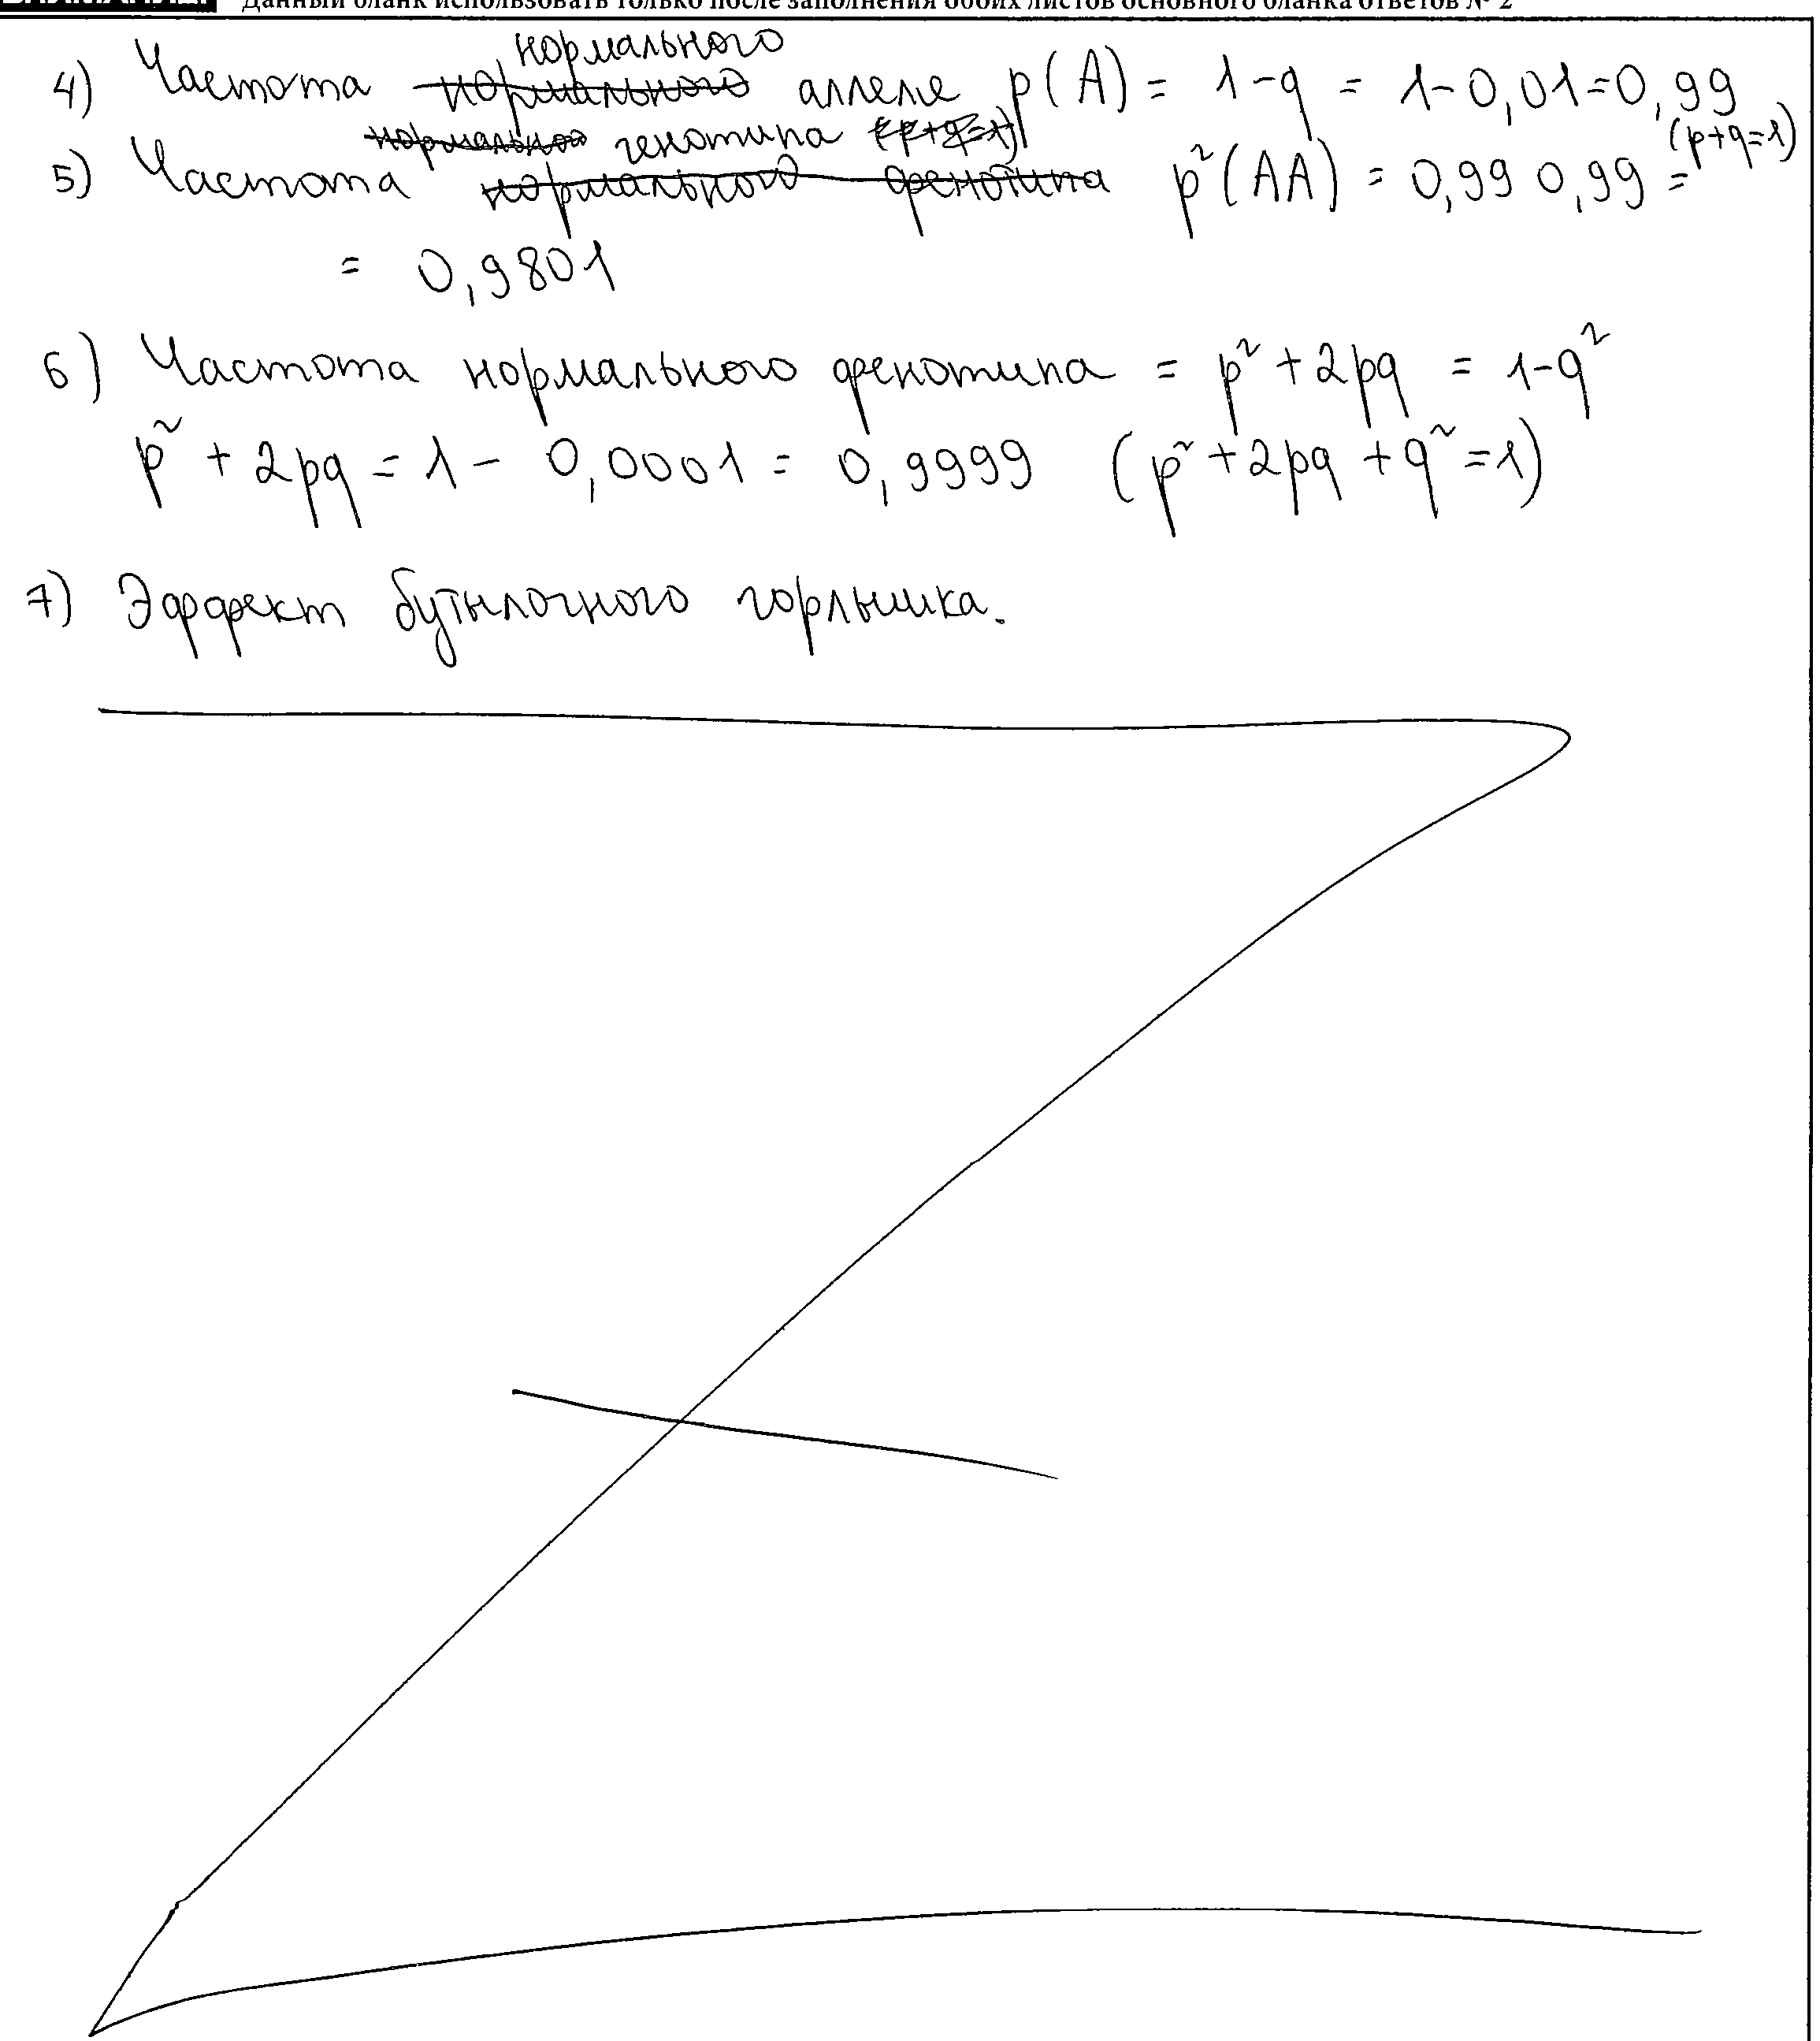 Данный бланк использовать только после заполнения обоих листов основного бланка ответов № 2
нормального
4) Частота нормального аллеле p(A) = 1-q = 1-0,01=0,99
нормальной генотипа (p+q=1) (p+q=1)
5) Частота нормального фенотипа p²(AA) = 0,99 0,99 =
= 0,9801
6) Частота нормального фенотипа = p² + 2pq = 1-q²
p² + 2pq = 1 - 0,0001 = 0,9999 (p² + 2pq + q² = 1)
7) Эффект бутылочного горлышка.